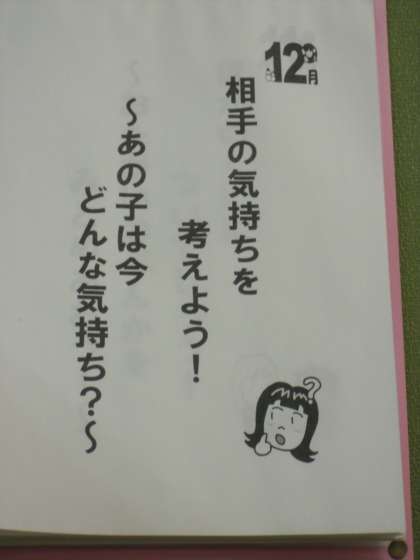 12月
相手の気持ちを
考えよう！
～あの子は今
どんな気持ち？～
?